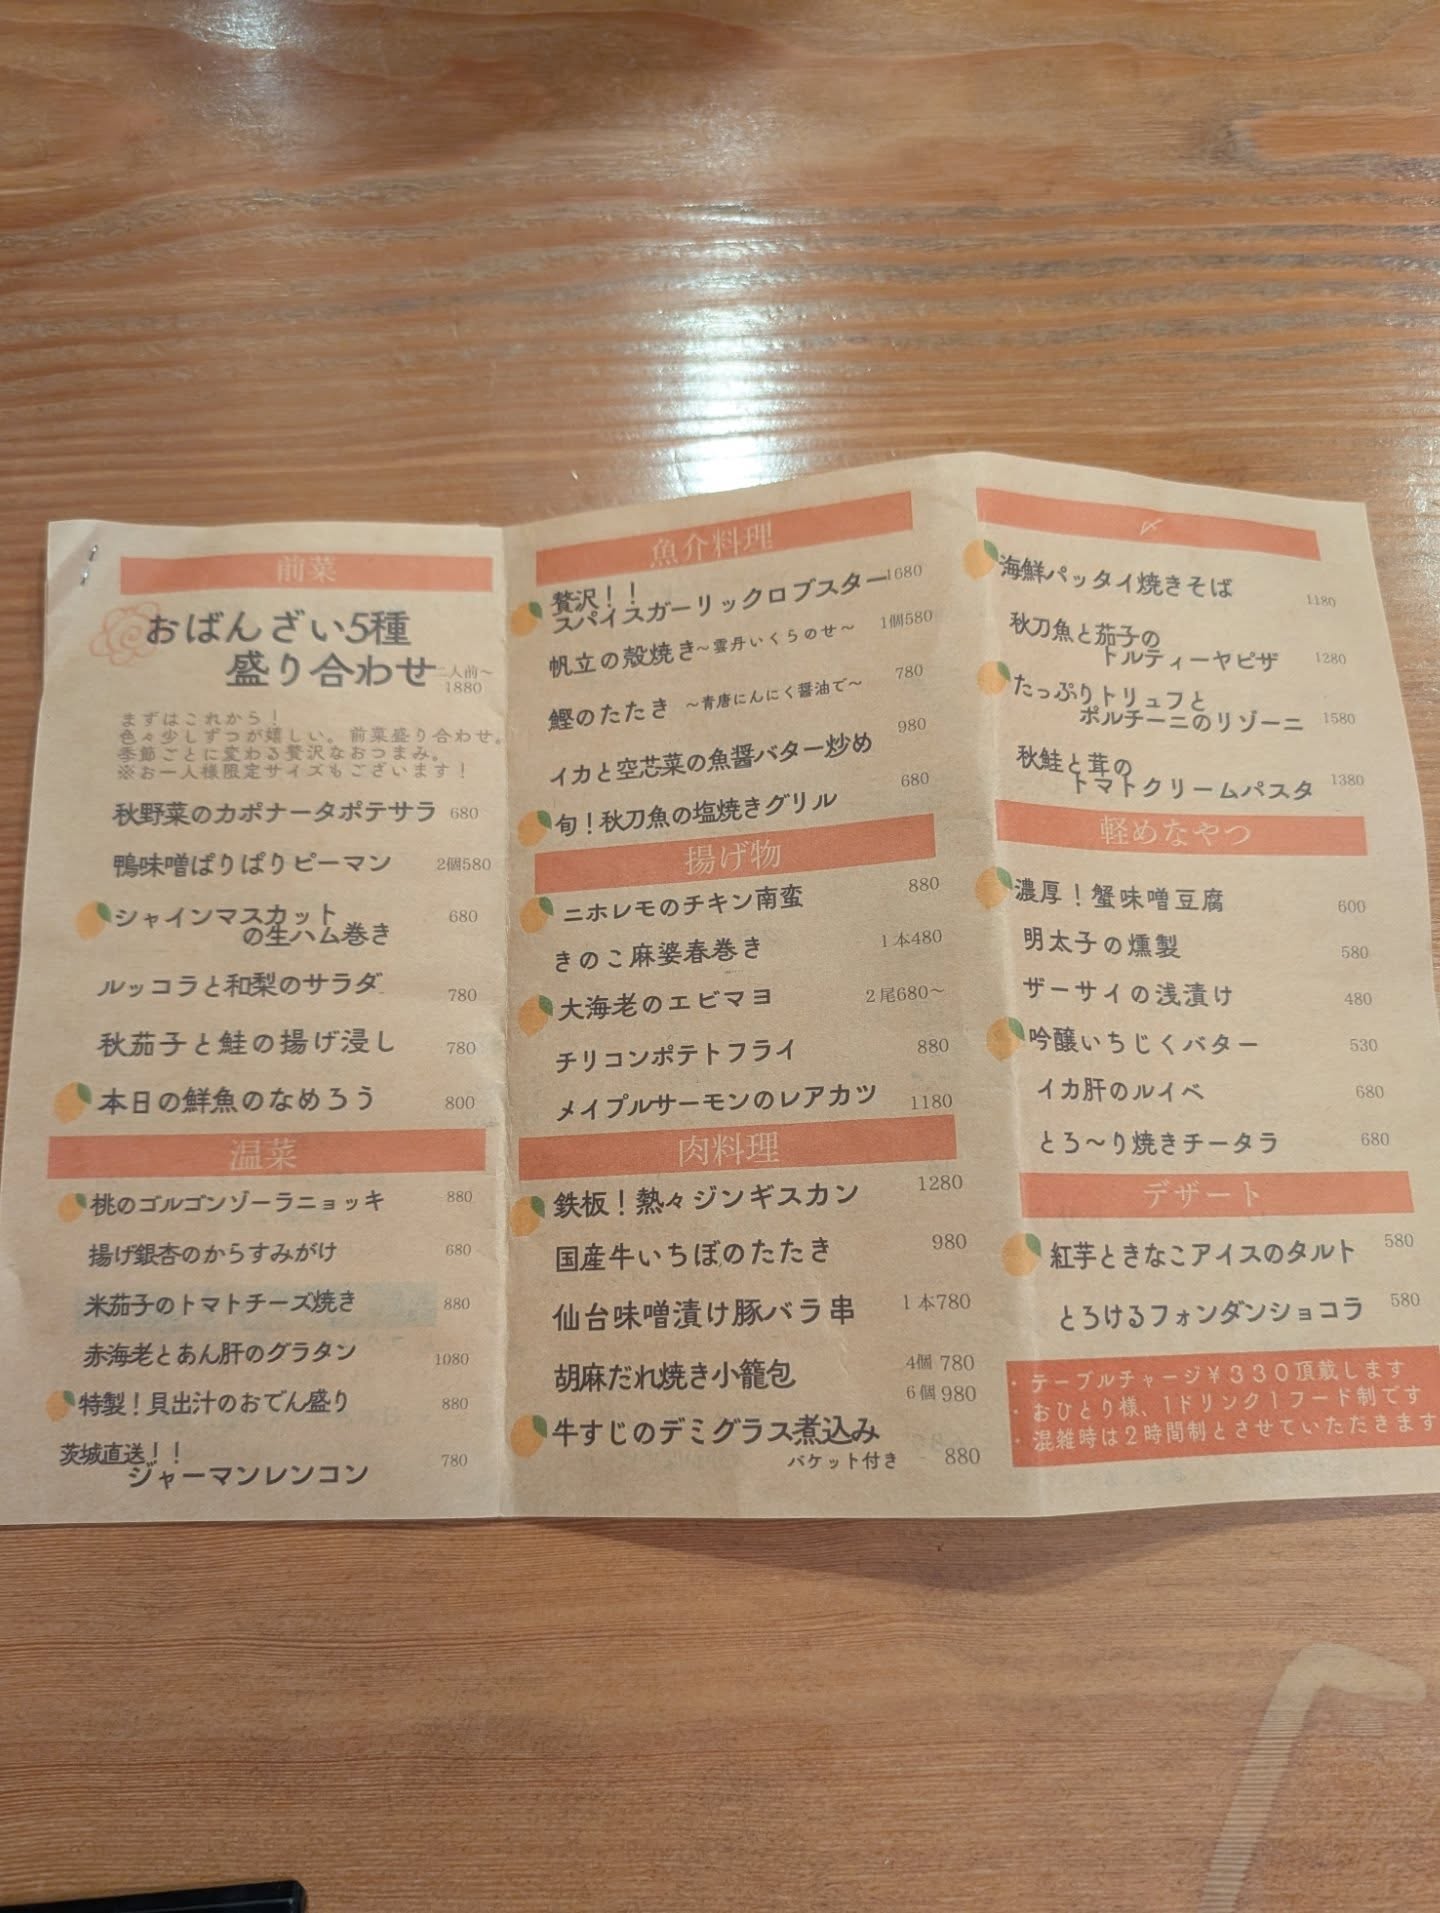 前菜
おばんざい5種
盛り合わせ
二人前〜
1880
まずはこれから！
色々少しずつが嬉しい。前菜盛り合わせ。
季節ごとに変わる贅沢なおつまみ。
※お一人様限定サイズもございます！
秋野菜のカポナータポテサラ 680
鴨味噌ぱりぱりピーマン 2個580
シャインマスカット 680
の生ハム巻き
ルッコラと和梨のサラダ 780
秋茄子と鮭の揚げ浸し 780
本日の鮮魚のなめろう 800
温菜
桃のゴルゴンゾーラニョッキ 880
揚げ銀杏のからすみがけ 680
米茄子のトマトチーズ焼き 880
赤海老とあん肝のグラタン 1080
特製！貝出汁のおでん盛り 880
茨城直送！！
ジャーマンレンコン 780
魚介料理
贅沢！！
スパイスガーリックロブスター 1680
帆立の殻焼き〜雲丹いくらのせ〜 1個580
鰹のたたき 〜青唐にんにく醤油で〜 780
イカと空芯菜の魚醤バター炒め 980
旬！秋刀魚の塩焼きグリル 680
揚げ物
ニホレモのチキン南蛮 880
きのこ麻婆春巻き 1本480
大海老のエビマヨ 2尾680〜
チリコンポテトフライ 880
メイプルサーモンのレアカツ 1180
肉料理
鉄板！熱々ジンギスカン 1280
国産牛いちぼのたたき 980
仙台味噌漬け豚バラ串 1本780
胡麻だれ焼き小籠包 4個 780
6個 980
牛すじのデミグラス煮込み
バケット付き 880
〆
海鮮パッタイ焼きそば 1180
秋刀魚と茄子の
トルティーヤピザ 1280
たっぷりトリュフと
ポルチーニのリゾーニ 1580
秋鮭と茸の
トマトクリームパスタ 1380
軽めなやつ
濃厚！蟹味噌豆腐 600
明太子の燻製 580
ザーサイの浅漬け 480
吟醸いちじくバター 530
イカ肝のルイベ 680
とろ〜り焼きチータラ 680
デザート
紅芋ときなこアイスのタルト 580
とろけるフォンダンショコラ 580
・テーブルチャージ￥330頂戴します
・おひとり様、1ドリンク1フード制です
・混雑時は2時間制とさせていただきます